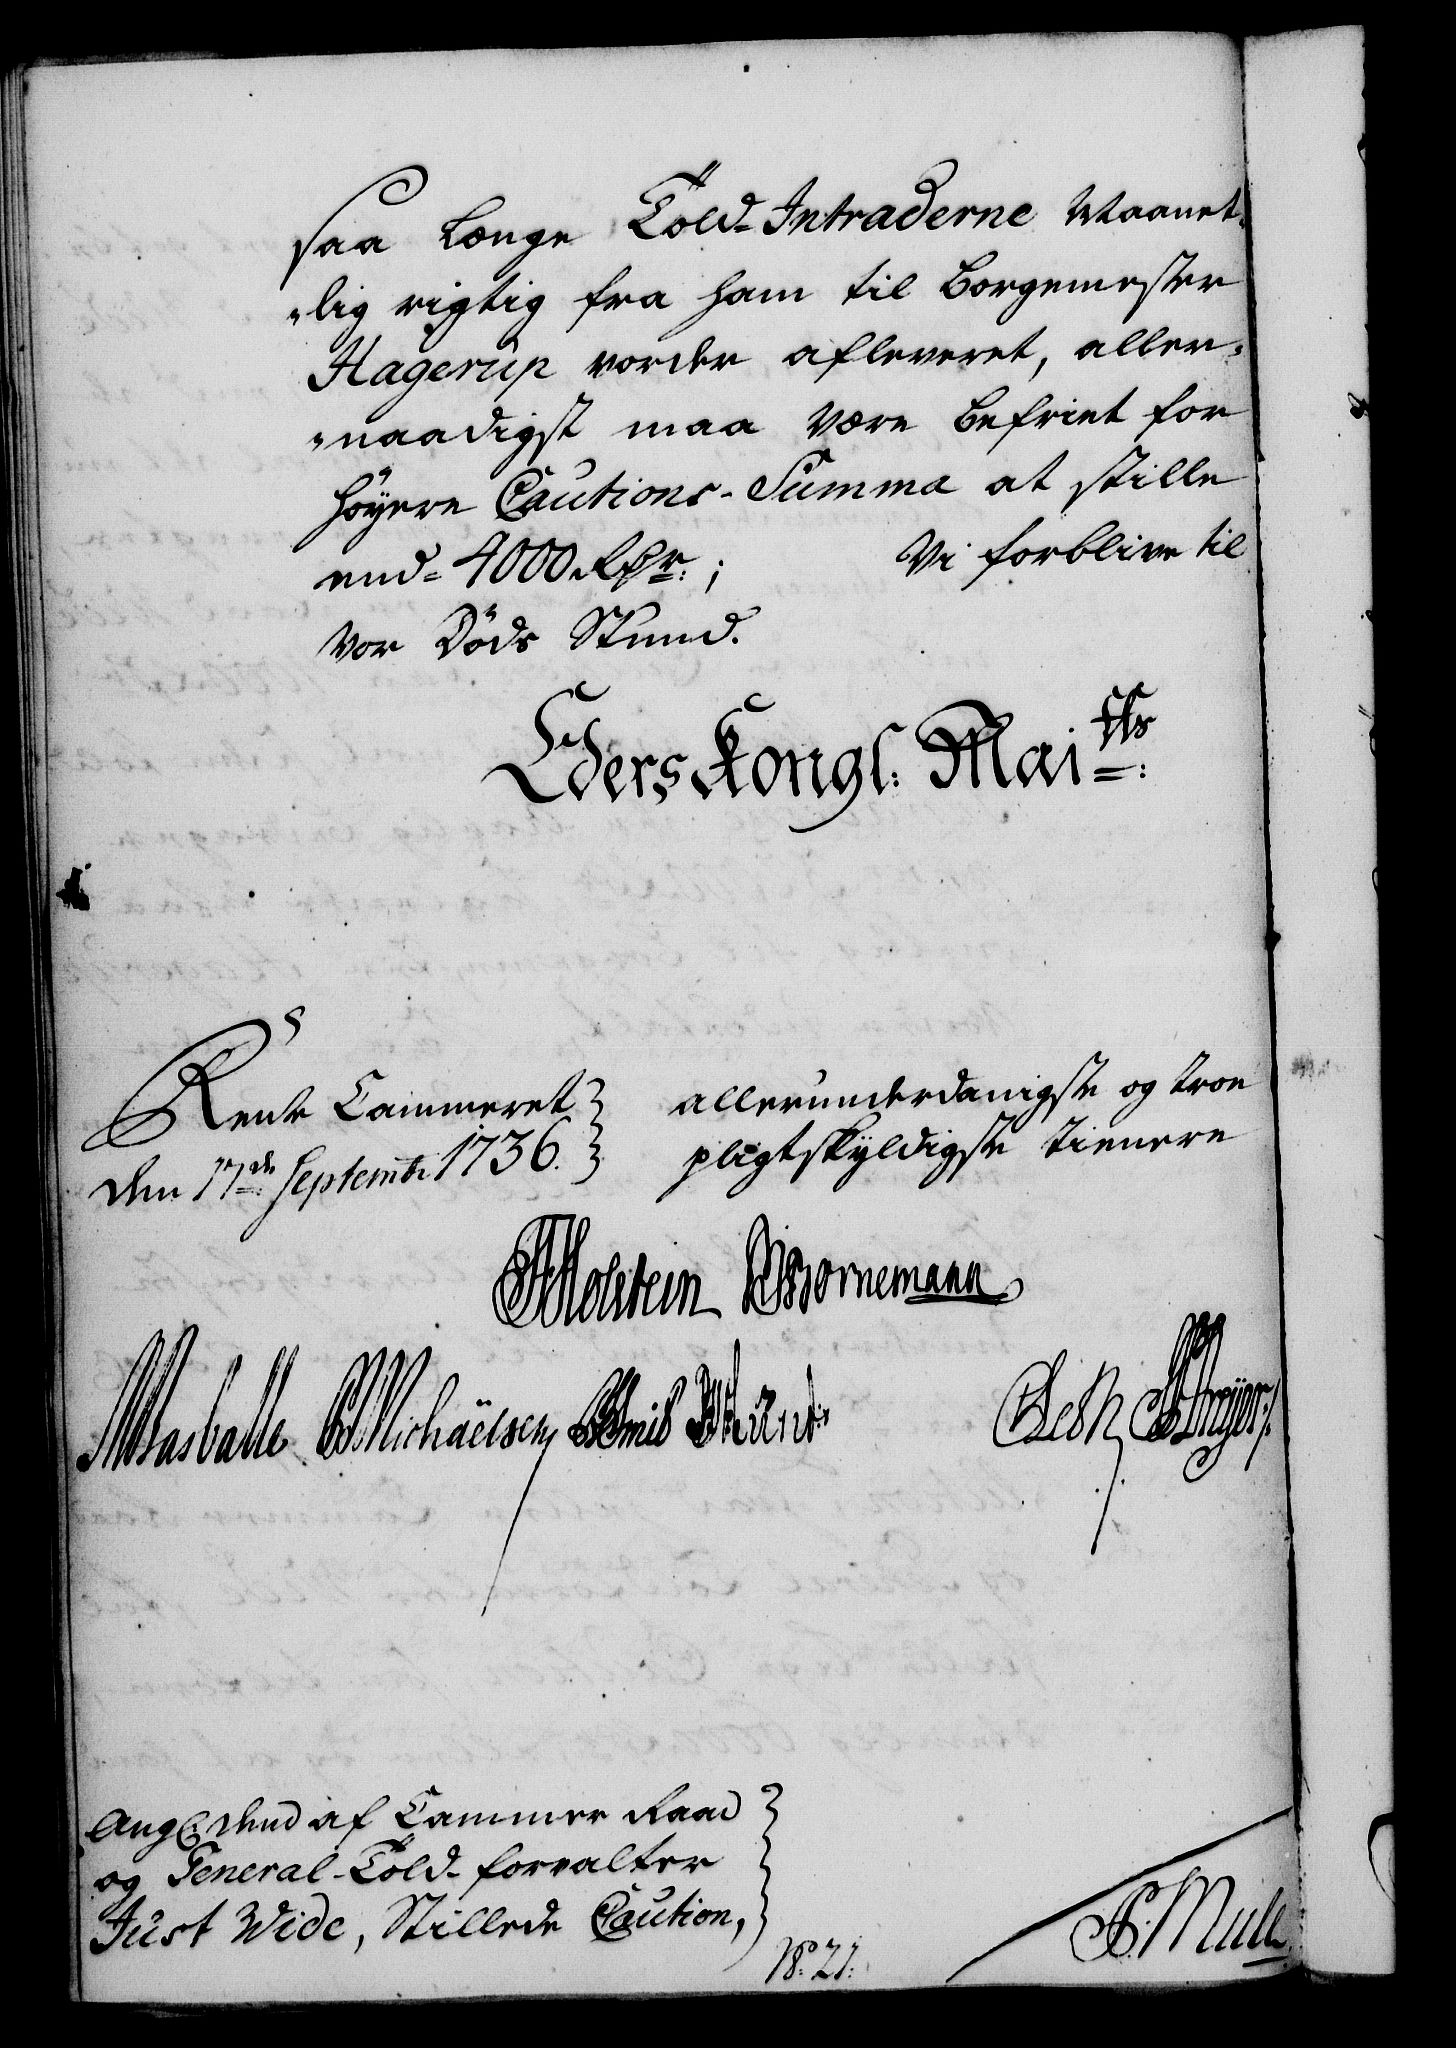 saa længe Told-Intraderne Maanet-
lig rigtig fra ham til Borgemester
Hagerup vorder afleveret, aller-
naadigst maa være befriet for
høyere Cautions-Summa at stille
end 4000 Rdr:; Vi forblive til
vor Döds Stund.
Eders Kongl: Mai:tts
Rente Cammeret
den 17de Septembr 1736.
allerunderdanigste og troe
pligtskyldigste tienere
Holstein Bornemann
Wasballe Michaëlsen
Müll
Ang: dend af Cammer Raad
og General-Told-forvalter
Just Wide, Stillede Caution,
No: 21: